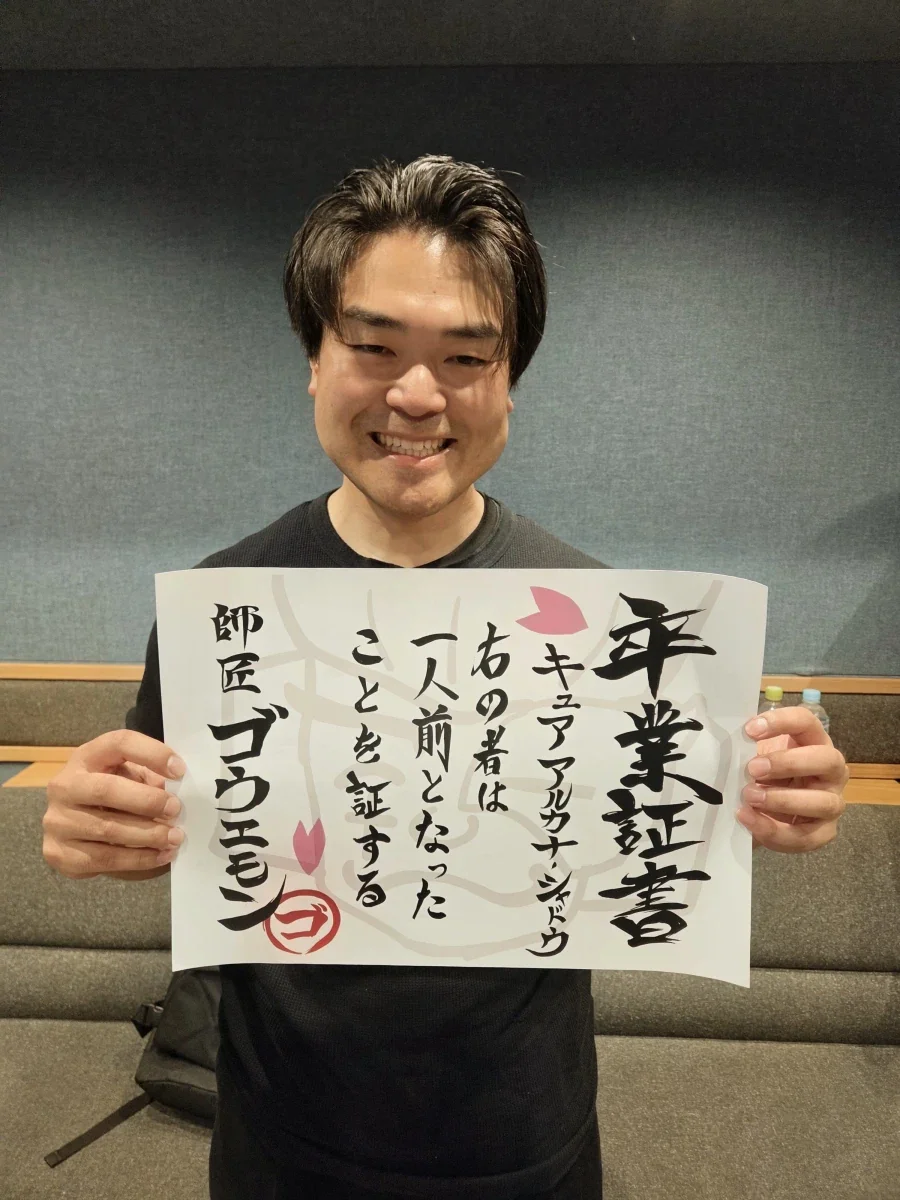 卒業証書
キュアアルカナ・シャドウ
右の者は
一人前となった
ことを証する
師匠 ゴウエモン
ゴ